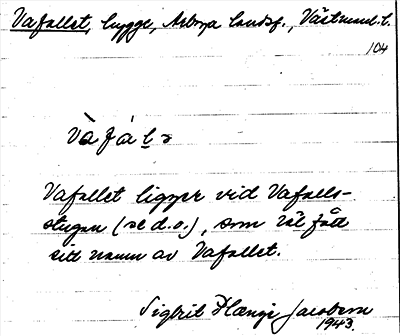 Vafallet, bygge, Arboga landsf., Västmanl. l.
104
Vafallet ligger vid Vafalls-
stugan (se d.o.), som väl fått
sitt namn av Vafallet.
Sigfrid Jacobson
1943.